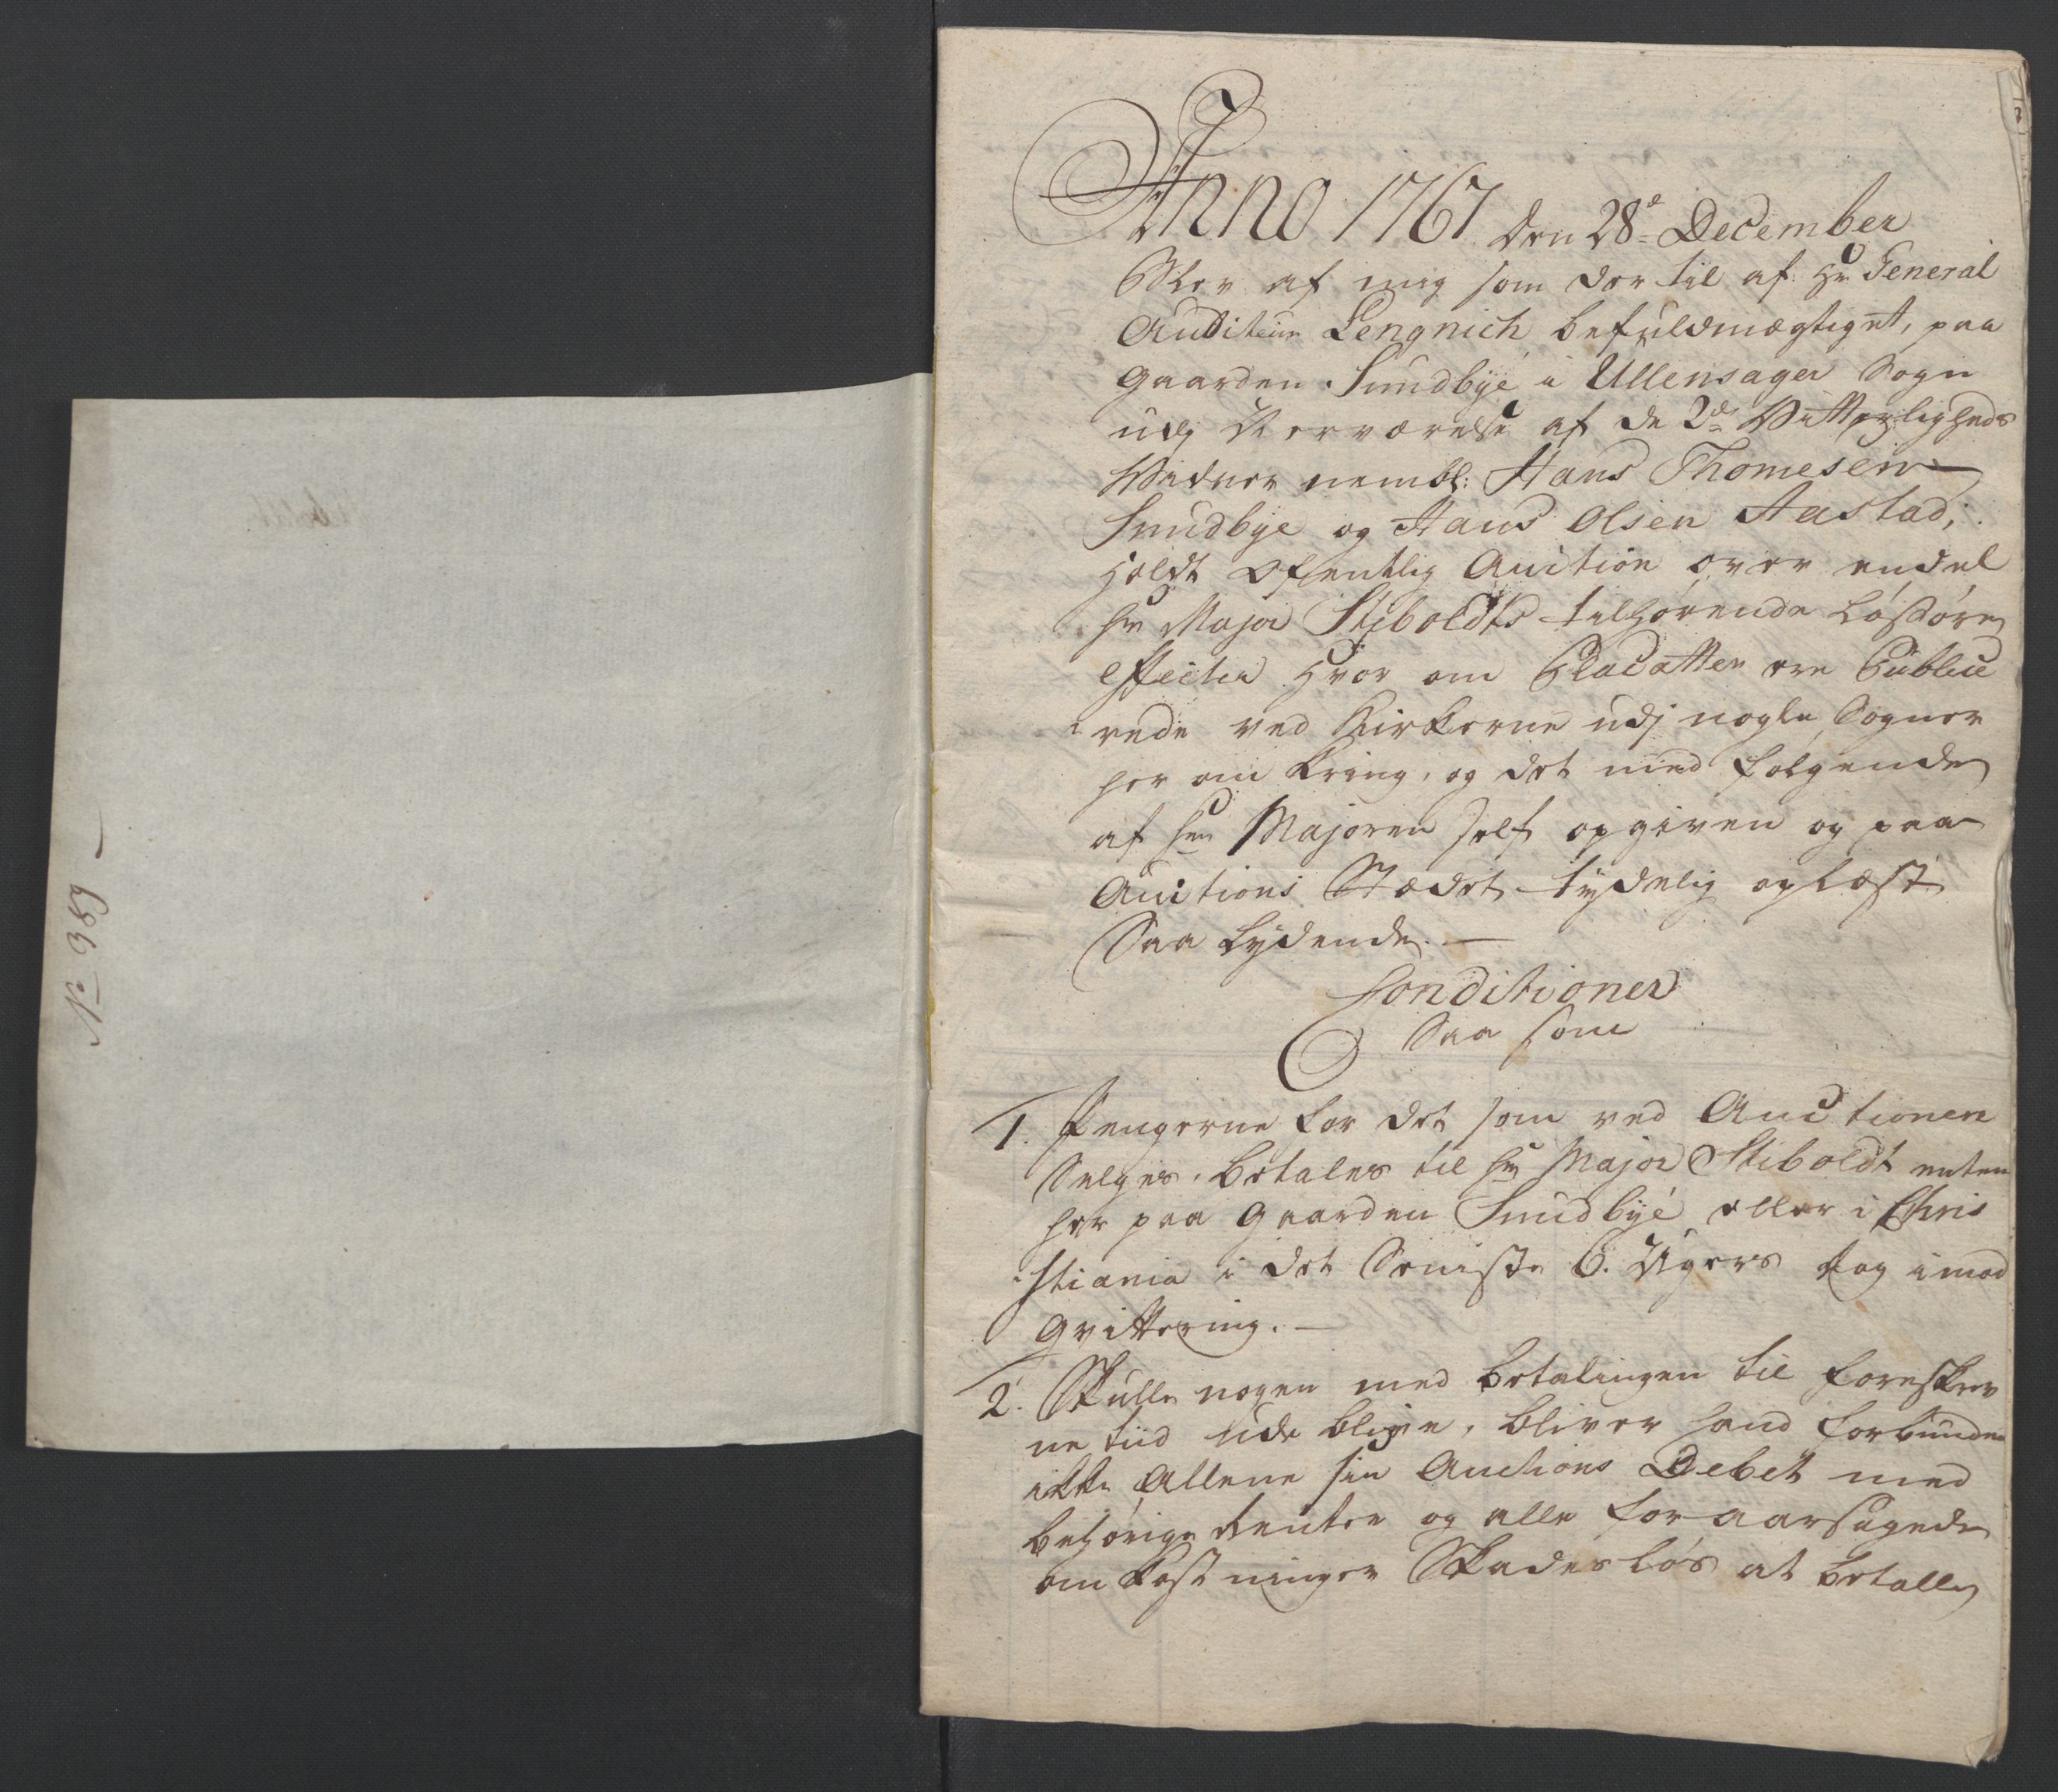 No 389 —
Anno 1767 den 28de December
Blev af mig som der til af Hr General
Auditeur Lengnich befuldmægtiget, paa
Gaarden Sundbye i Ullensager Sogn
udj Nerværelse af de 2de Vitterligheds
Vidner nembl: Hans Thomesen
Sundbye og Hans Olsen Aastad;
Holdt Ofentlig Auction over endel
Hr Major Stiboldts tilhørende Løsøre
Effecter Hvor om Placatter ere Publice
rede ved Kirkerne udj nogle Sogner
her om kring, og det med følgende
af Hr Majoren self opgiven og paa
Auctions Stædet tydelig oplæst
Saa lydende. —
Conditioner
Saa som
1. Pengerne for det som ved Auctionen
Selges, betales til Hr Major Stiboldt enten
her paa Gaarden Sundbye eller i Chri
stiania i det Seniste 6. Ugers dag imod
Qvittering. —
2. Skulle nogen med betalingen til foreskrev
ne tiid ude blive, bliver hand forbunden
ikke Allene sin Auctions Debet med
behørige Renter og alle foraarsagede
omkostninger Skadesløs at betalle